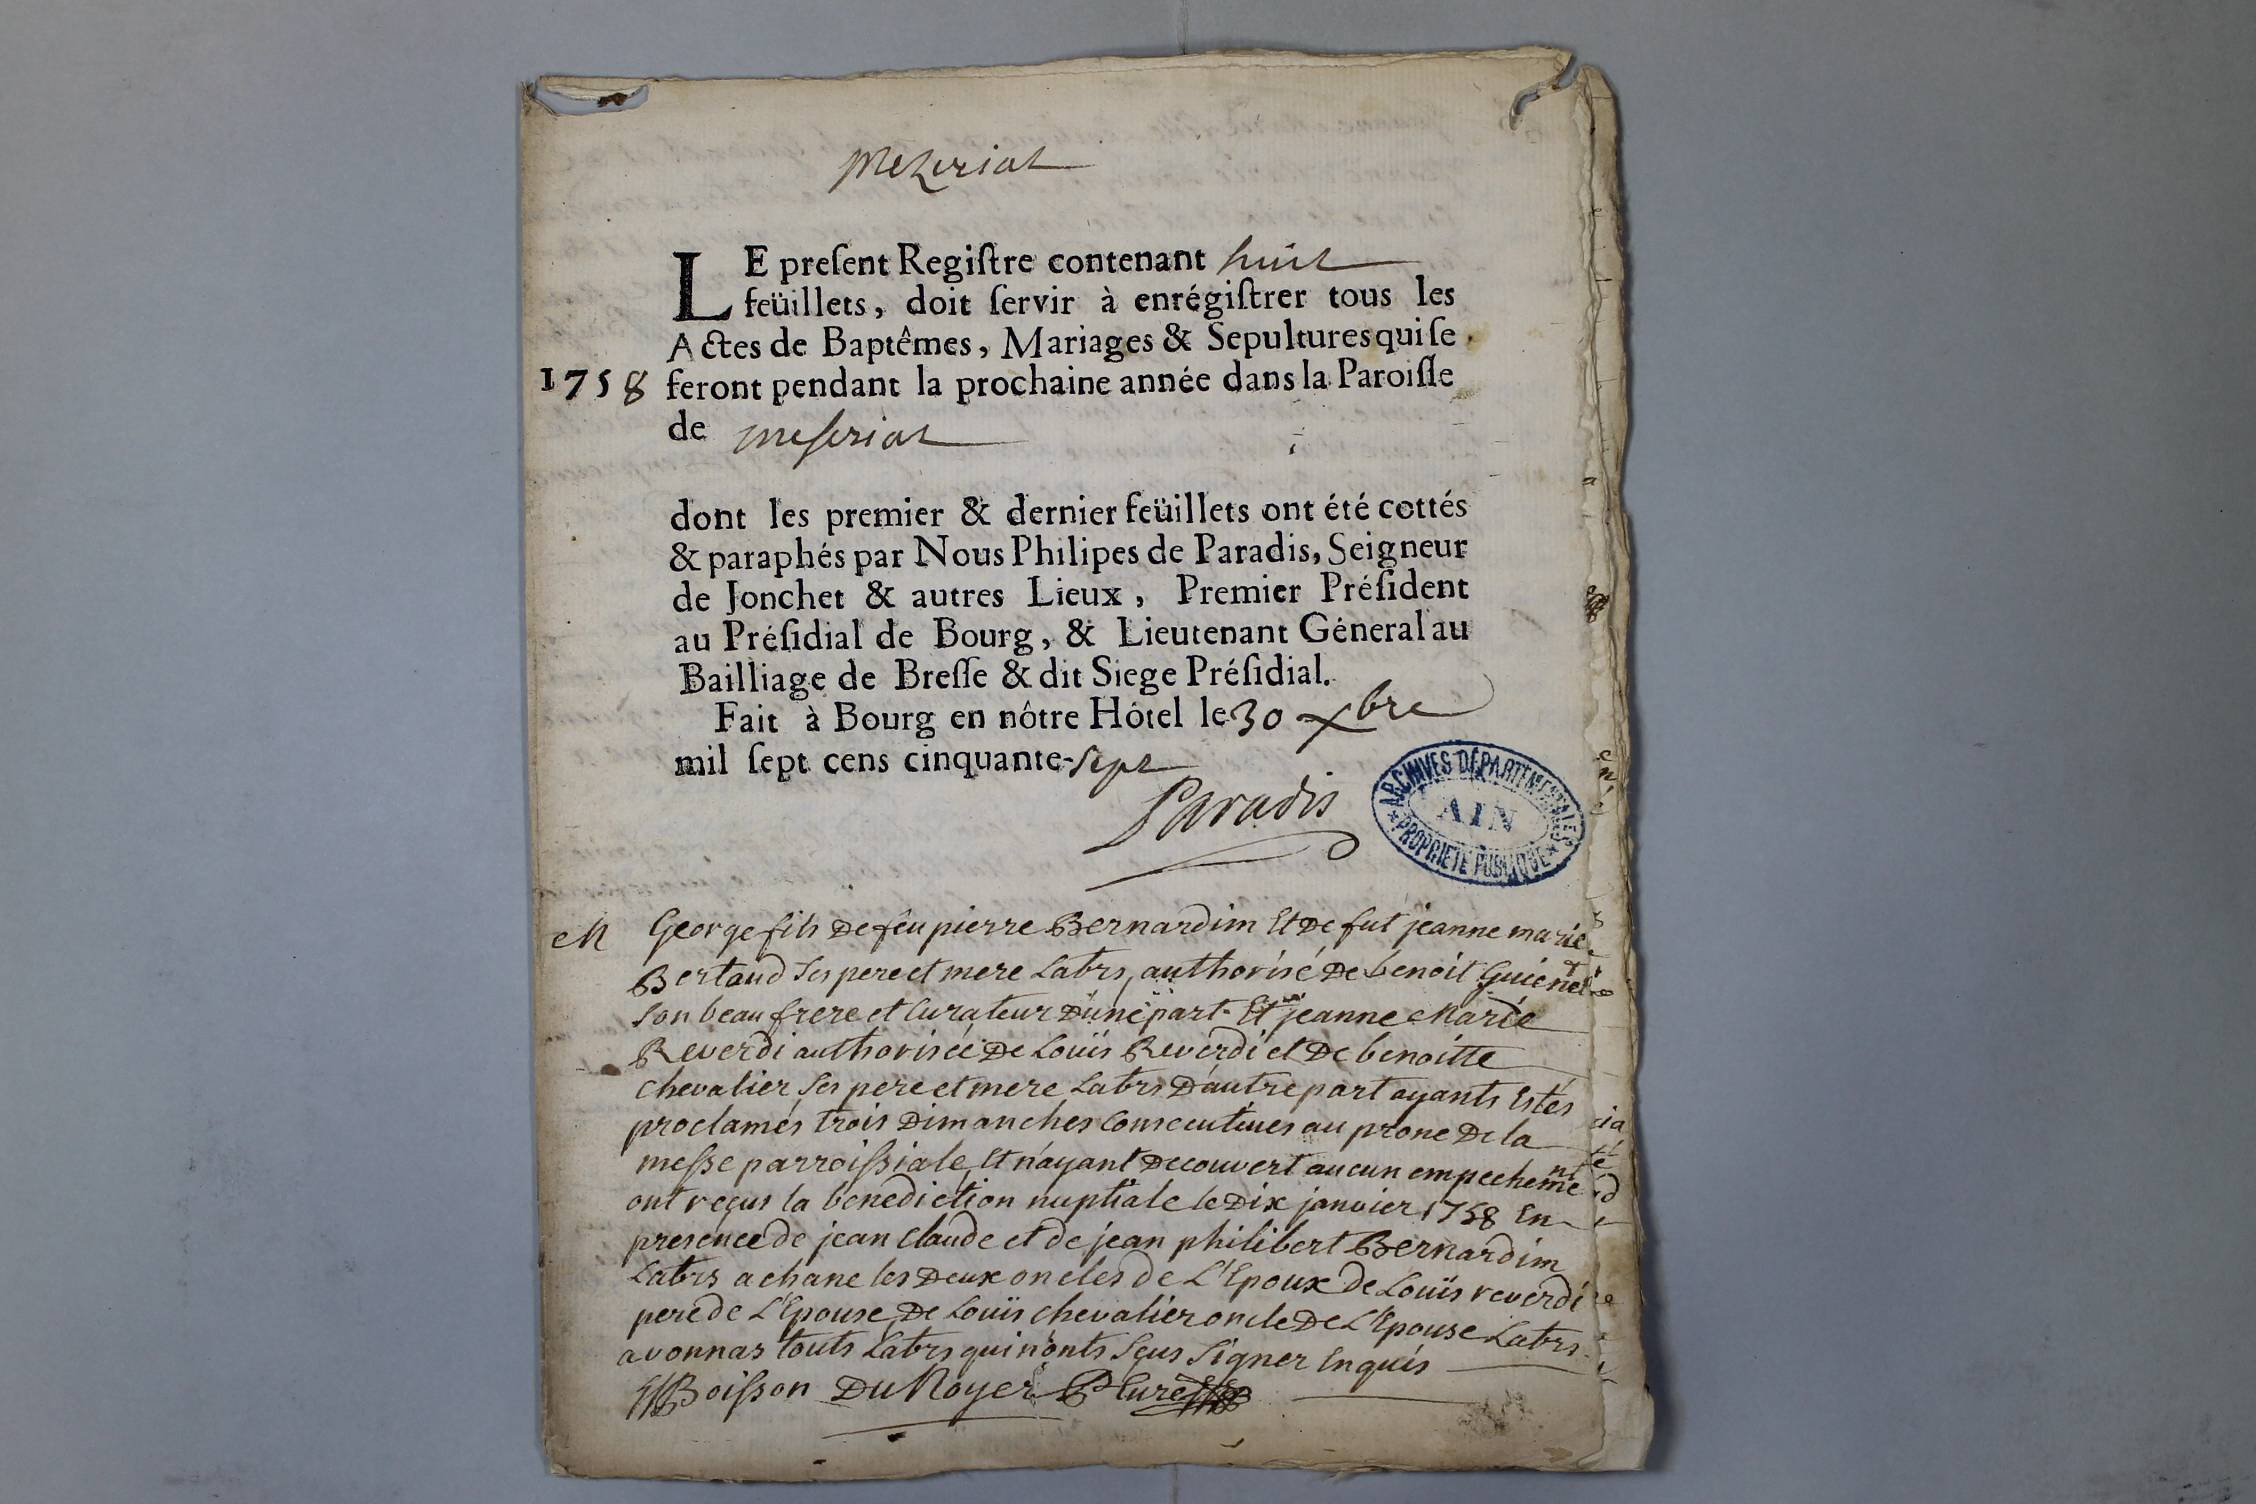 Mezeriat
LE presẽnt Regiſtre contenant huit
feüillets, doit ſervir à enrégiſtrer tous les
Actes de Baptêmes, Mariages & Sepultures qui ſe
1758 feront pendant la prochaine année dans la Paroiſſe
de meseriat
dont les premier & dernier feüillets ont été cottés
& paraphés par Nous Philipes de Paradis, Seigneur
de Jonchet & autres Lieux, Premier Préſident
au Préſidial de Bourg, & Lieutenant Géneral au
Bailliage de Breſſe & dit Siege Préſidial.
Fait à Bourg en nôtre Hôtel le 30 xbre
mil ſept cens cinquante-sept
Paradis
ARCHIVES DÉPARTEMENTALES
AIN
PROPRIETE PUBLIQUE
M George fils De feu pierre Bernardim Et De fut jeanne marie
Bertaud Ses pere et mere Labrs, authorisé De benoit
Son beau frere et Curateur D'une part. Et jeanne Marie
Reverdi authorisée De Louïs Reverdi et De benoitte
chevalier Ses pere et mere Labrs D'autre part ayants Estés
proclamés trois Dimanches Consecutives au prone De la
messe parroissiale, Et n'ayant Decouvert aucun empecheme nt
ont reçus la benediction nuptiale le Dix janvier 1758 En
presence de jean Claude et de jean philibert Bernardim
Labrs a chane les Deux oncles de L'Epoux de Louïs reverdi
pere de L'Epouse, De Louïs chevalier oncle De L'Epouse Labrs
a vonnas touts Labrs qui n'onts Sçus Signer Enquis
Boisson Du Noyer Curé